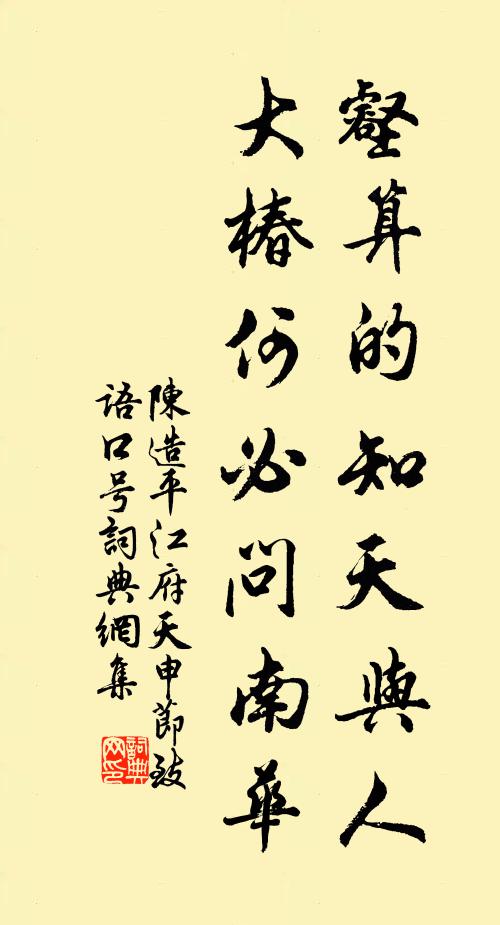 壡算的知天與人
大椿何必問南華
陳造平江府天申節致
語口号詞典網集
詞典
网印